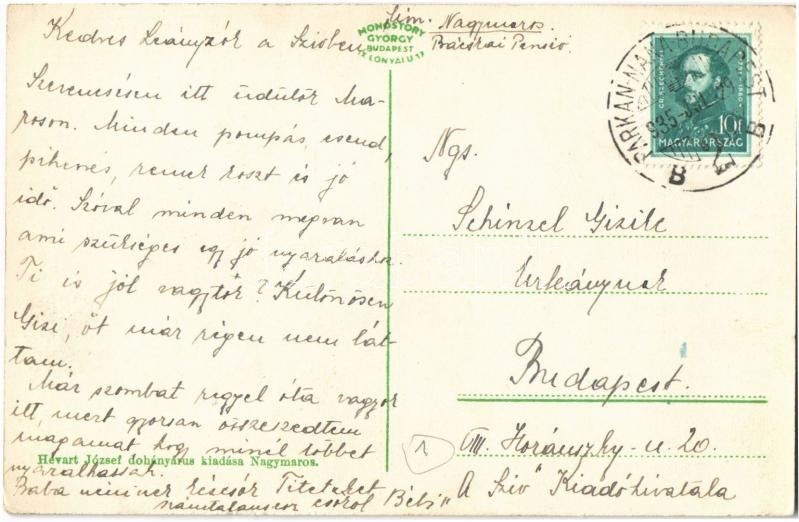 Kedves Leányzók a Szivben
Szerencsésen itt üdülök Ma-
roson. Minden pompás, csend,
pihenés, remek koszt és jó
idő. Szóval minden megvan
ami szükséges egy jó nyaraláshoz.
Ti is jól vagytok? Különösen
Gizi, őt már régen nem lát-
tam.
Már szombat reggel óta vagyok
itt, mert gyorsan összeszedtem
magamat hogy minél többet
nyaralhassak.
Hévart József dohányárus kiadása Nagymaros.
Baba néninek kézcsók Titeket
számtalanszor csókol "Bébi"
MONOSTORY
GYÖRGY
BUDAPEST
LÓNYAI U 17
Cím. Nagymaros
Bácskai Penzió
GR. SZÉCHENYI ISTVÁN
10f
MAGYARORSZÁG
PÁRKÁNY-NÁNA-BUDAPEST
935-JUL
B
B
Ngs.
Schinzel Gizike
Urleánynak
Budapest.
1
VIII. Horánszky-u. 20.
A "Sziv" Kiadóhivatala